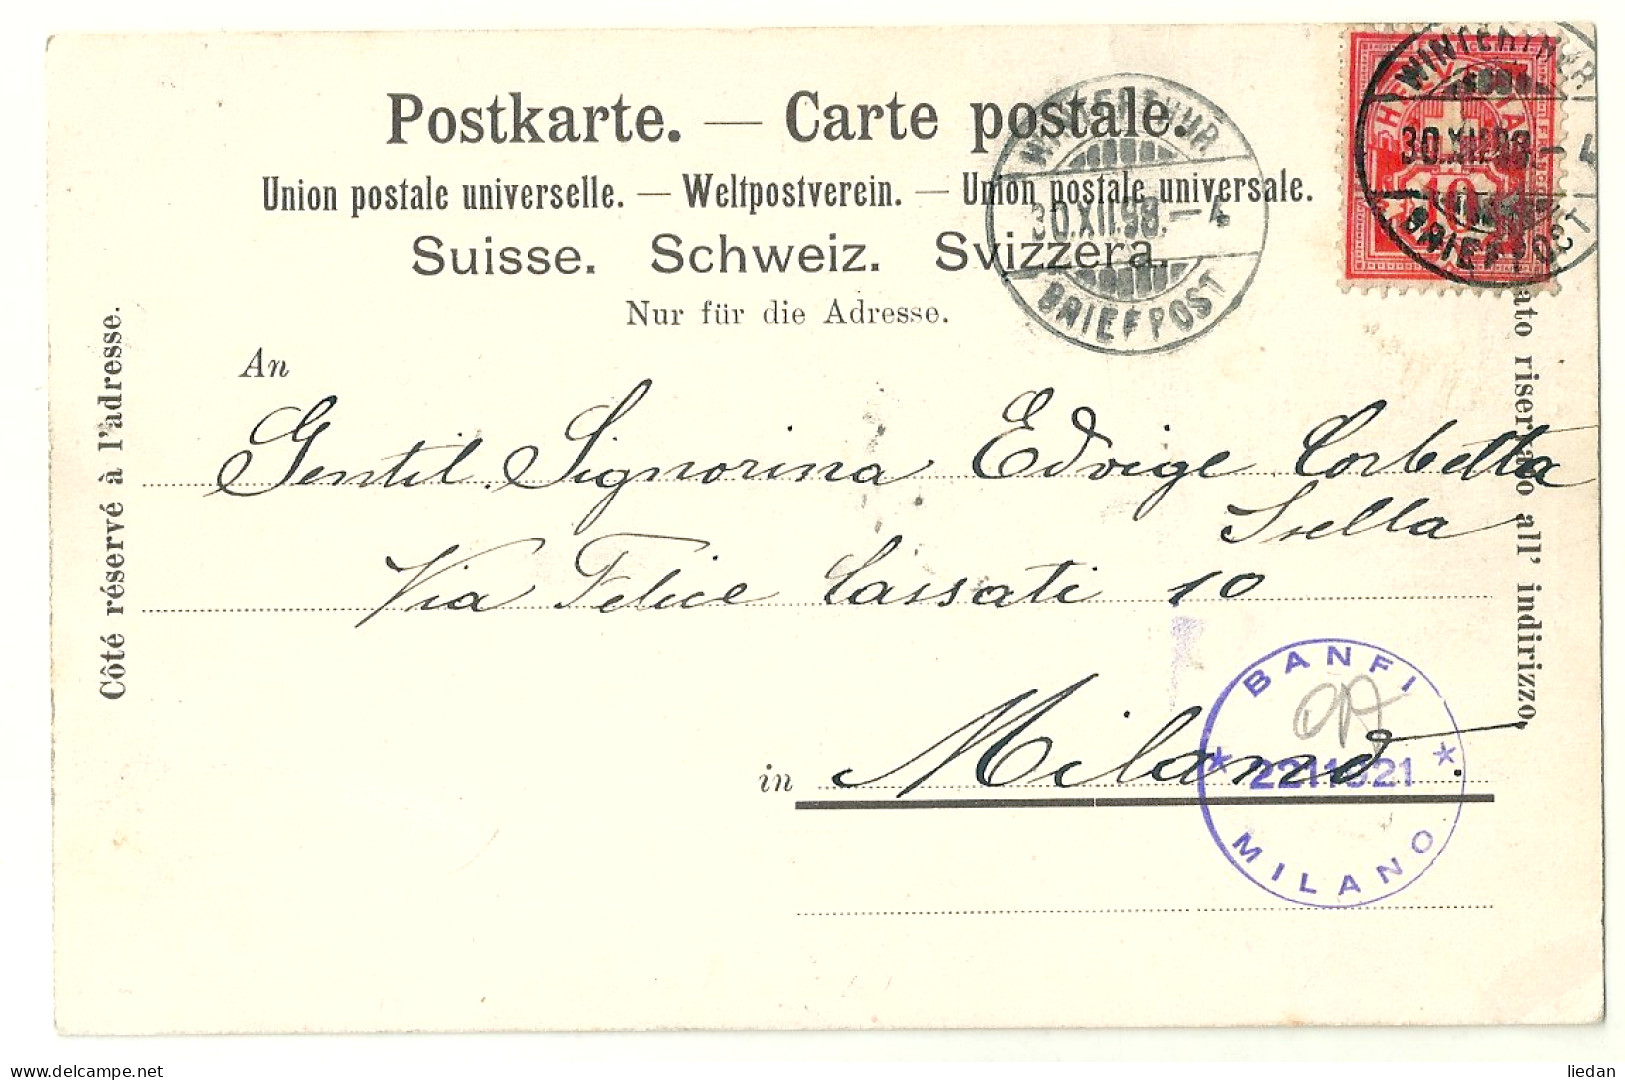 Postkarte. — Carte postale.
Union postale universelle. — Weltpostverein. — Union postale universale.
Suisse. Schweiz. Svizzera.
Nur für die Adresse.
WINTERTHUR
30.XII.98.–4
BRIEFPOST
WINTERTHUR
30.XII.98–4
BRIEFPOST
HELVETIA
10
Côté réservé à l'adresse.
ato riservato all' indirizzo.
An
Gentil. Signorina Edvige Corbetta
Isella
Via Felice Cassati 10
in Milano.
BANFI
MILANO
www.delcampe.net
liedan